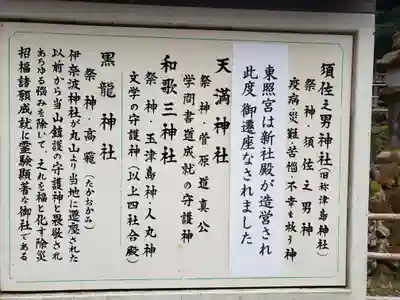 須佐之男神社（旧称津島神社）
祭神・須佐之男神
疫病災難・苦悩・不幸を祓う神
東照宮は新社殿が造営され
此度、御遷座なされました
天満神社
祭神・菅原道真公
学問書道成就の守護神
和歌三神社
祭神・玉津島神・人丸神
文学の守護神（以上四社合殿）
黒龍神社
祭神・高龗（たかおかみ）
伊奈波神社が丸山より当地に遷座された
以前から当山鎮護の守護神と畏敬され
あらゆる悩みを除いて、それを福と化す除災
招福諸願成就に霊験顕著な御社である